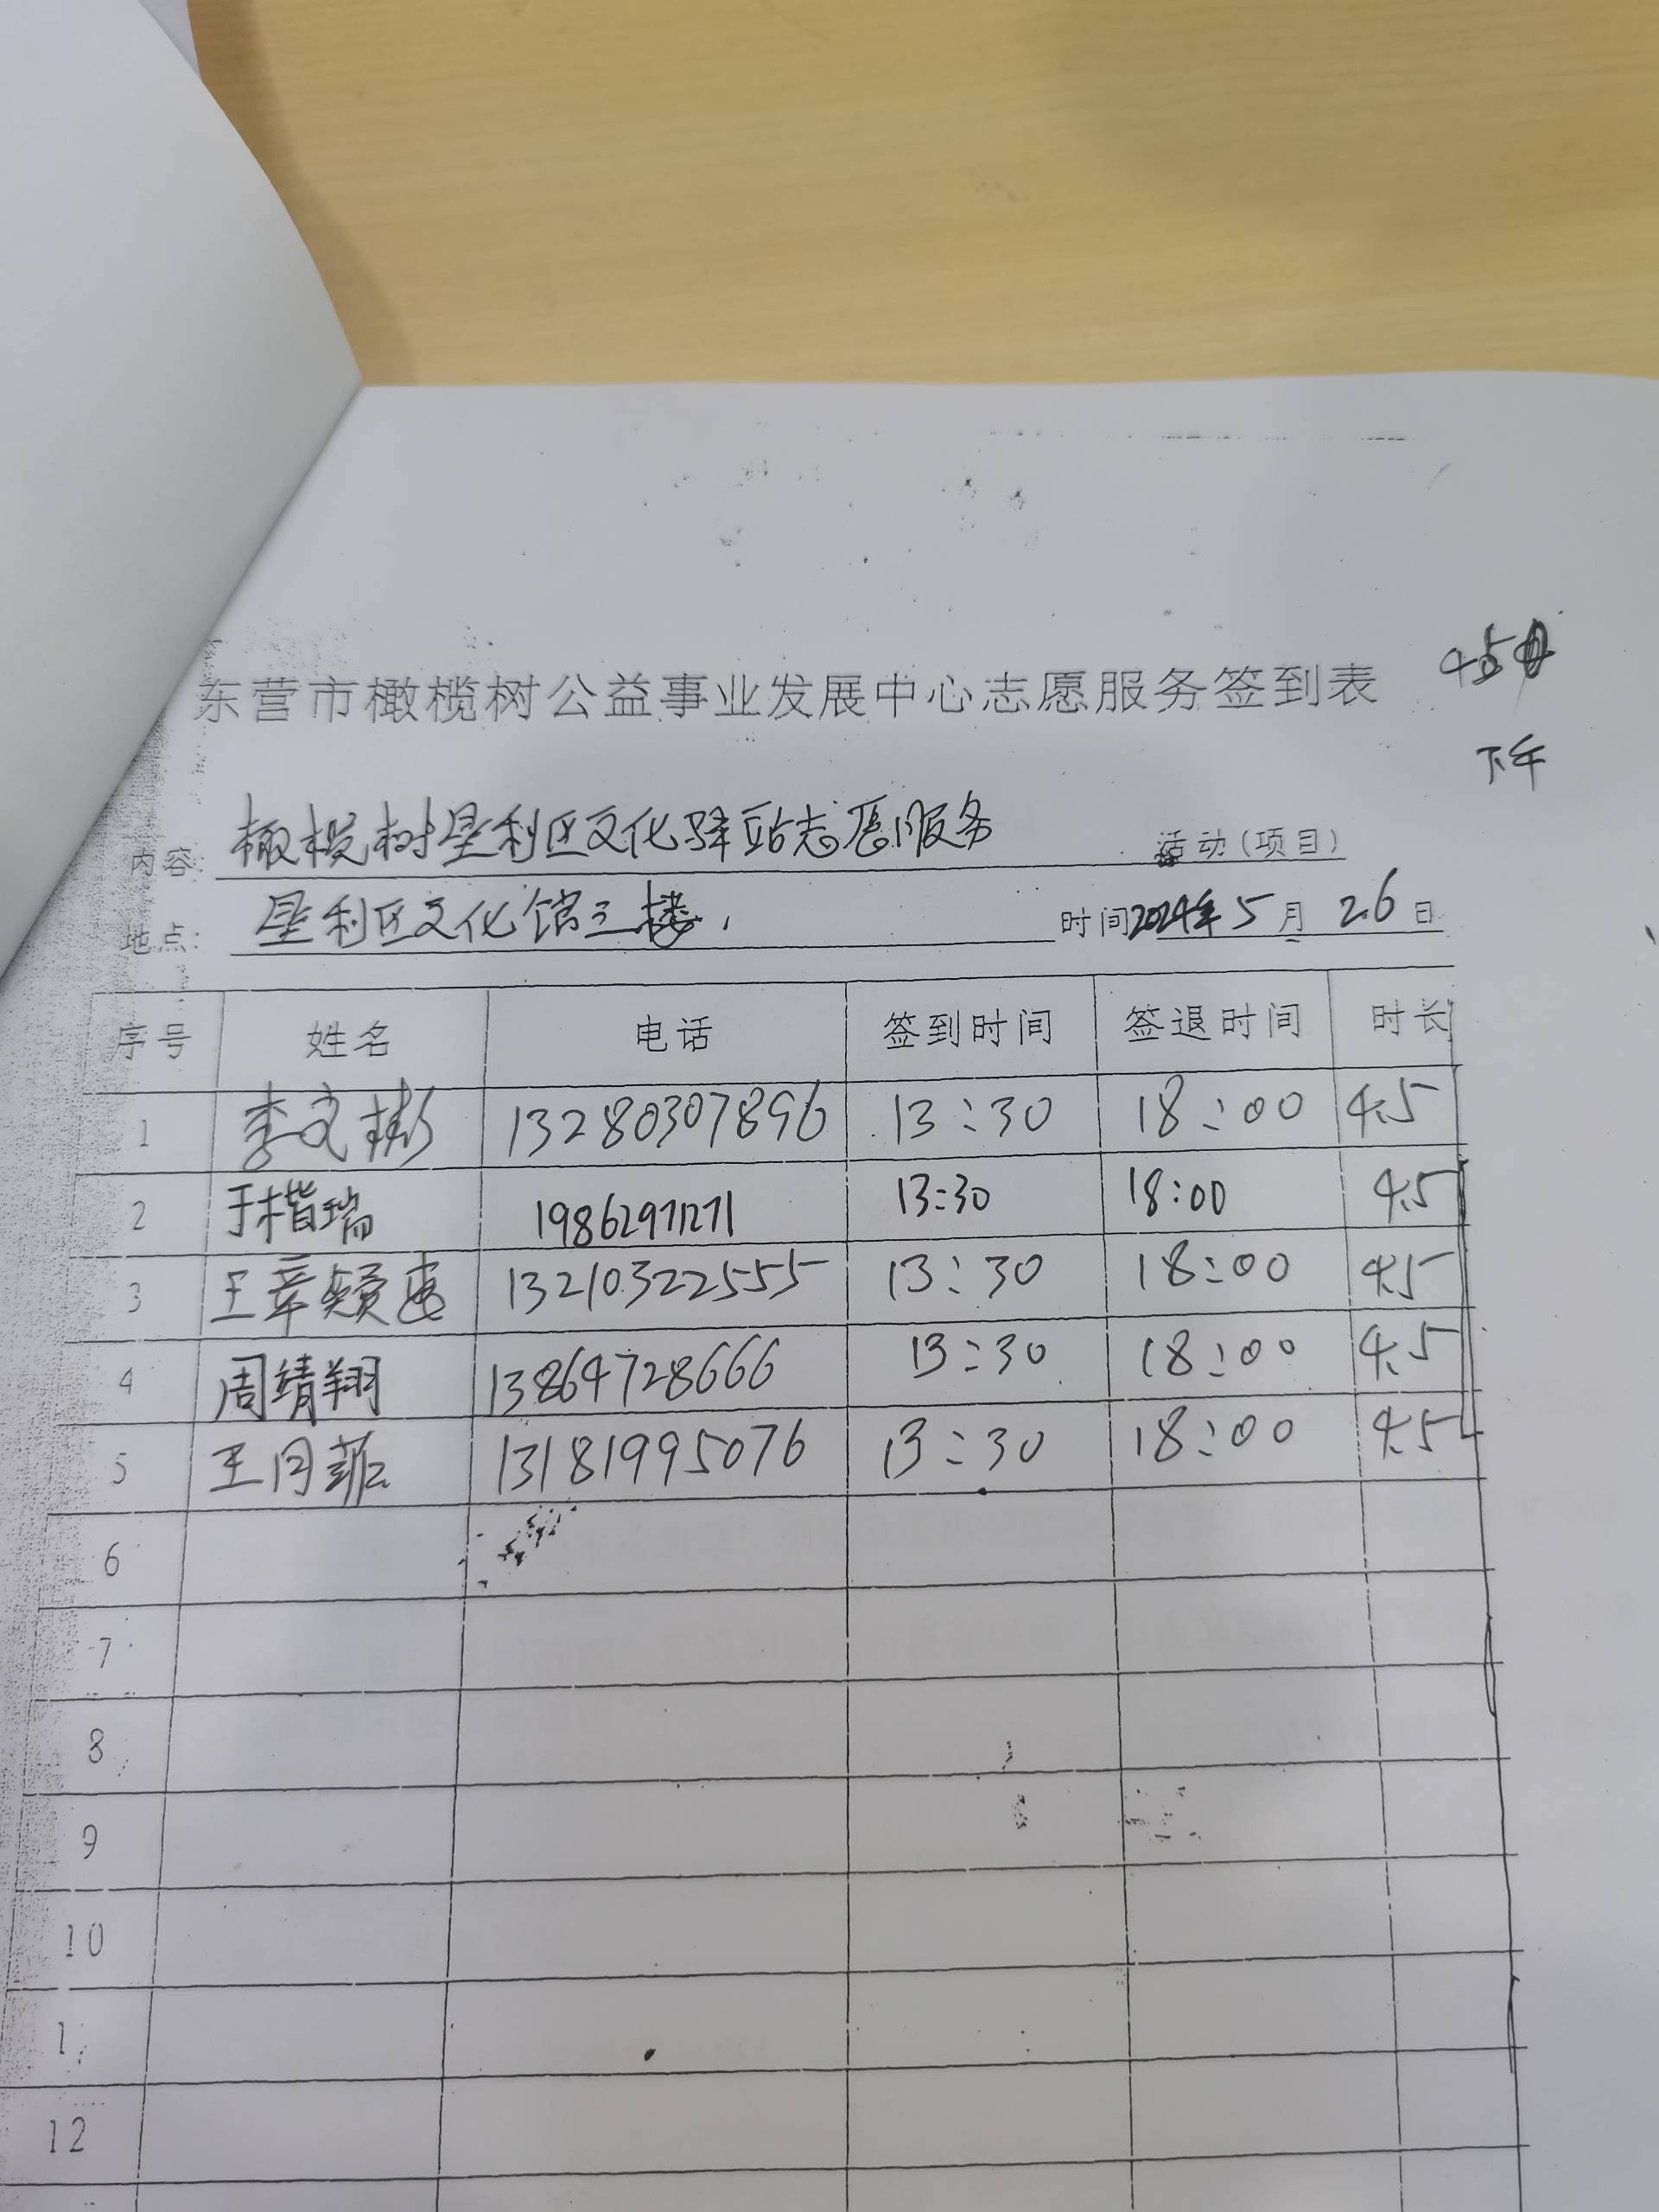 东营市橄榄树公益事业发展中心志愿服务签到表
下午
内容: 橄榄树垦利区文化驿站志愿服务 活动(项目)
地点: 垦利区文化馆三楼 时间2024年5月26日
序号 姓名 电话 签到时间 签退时间 时长
1 李文彬 13280307896 13:30 18:00 4.5
2 于楷瑞 13:30 18:00 4.5
3 王章颖惠 13210322555 13:30 18:00 4.5
4 周靖翔 13864728666 13:30 18:00 4.5
5 王月菲 13181995076 13:30 18:00 4.5
6
7
8
9
10
12